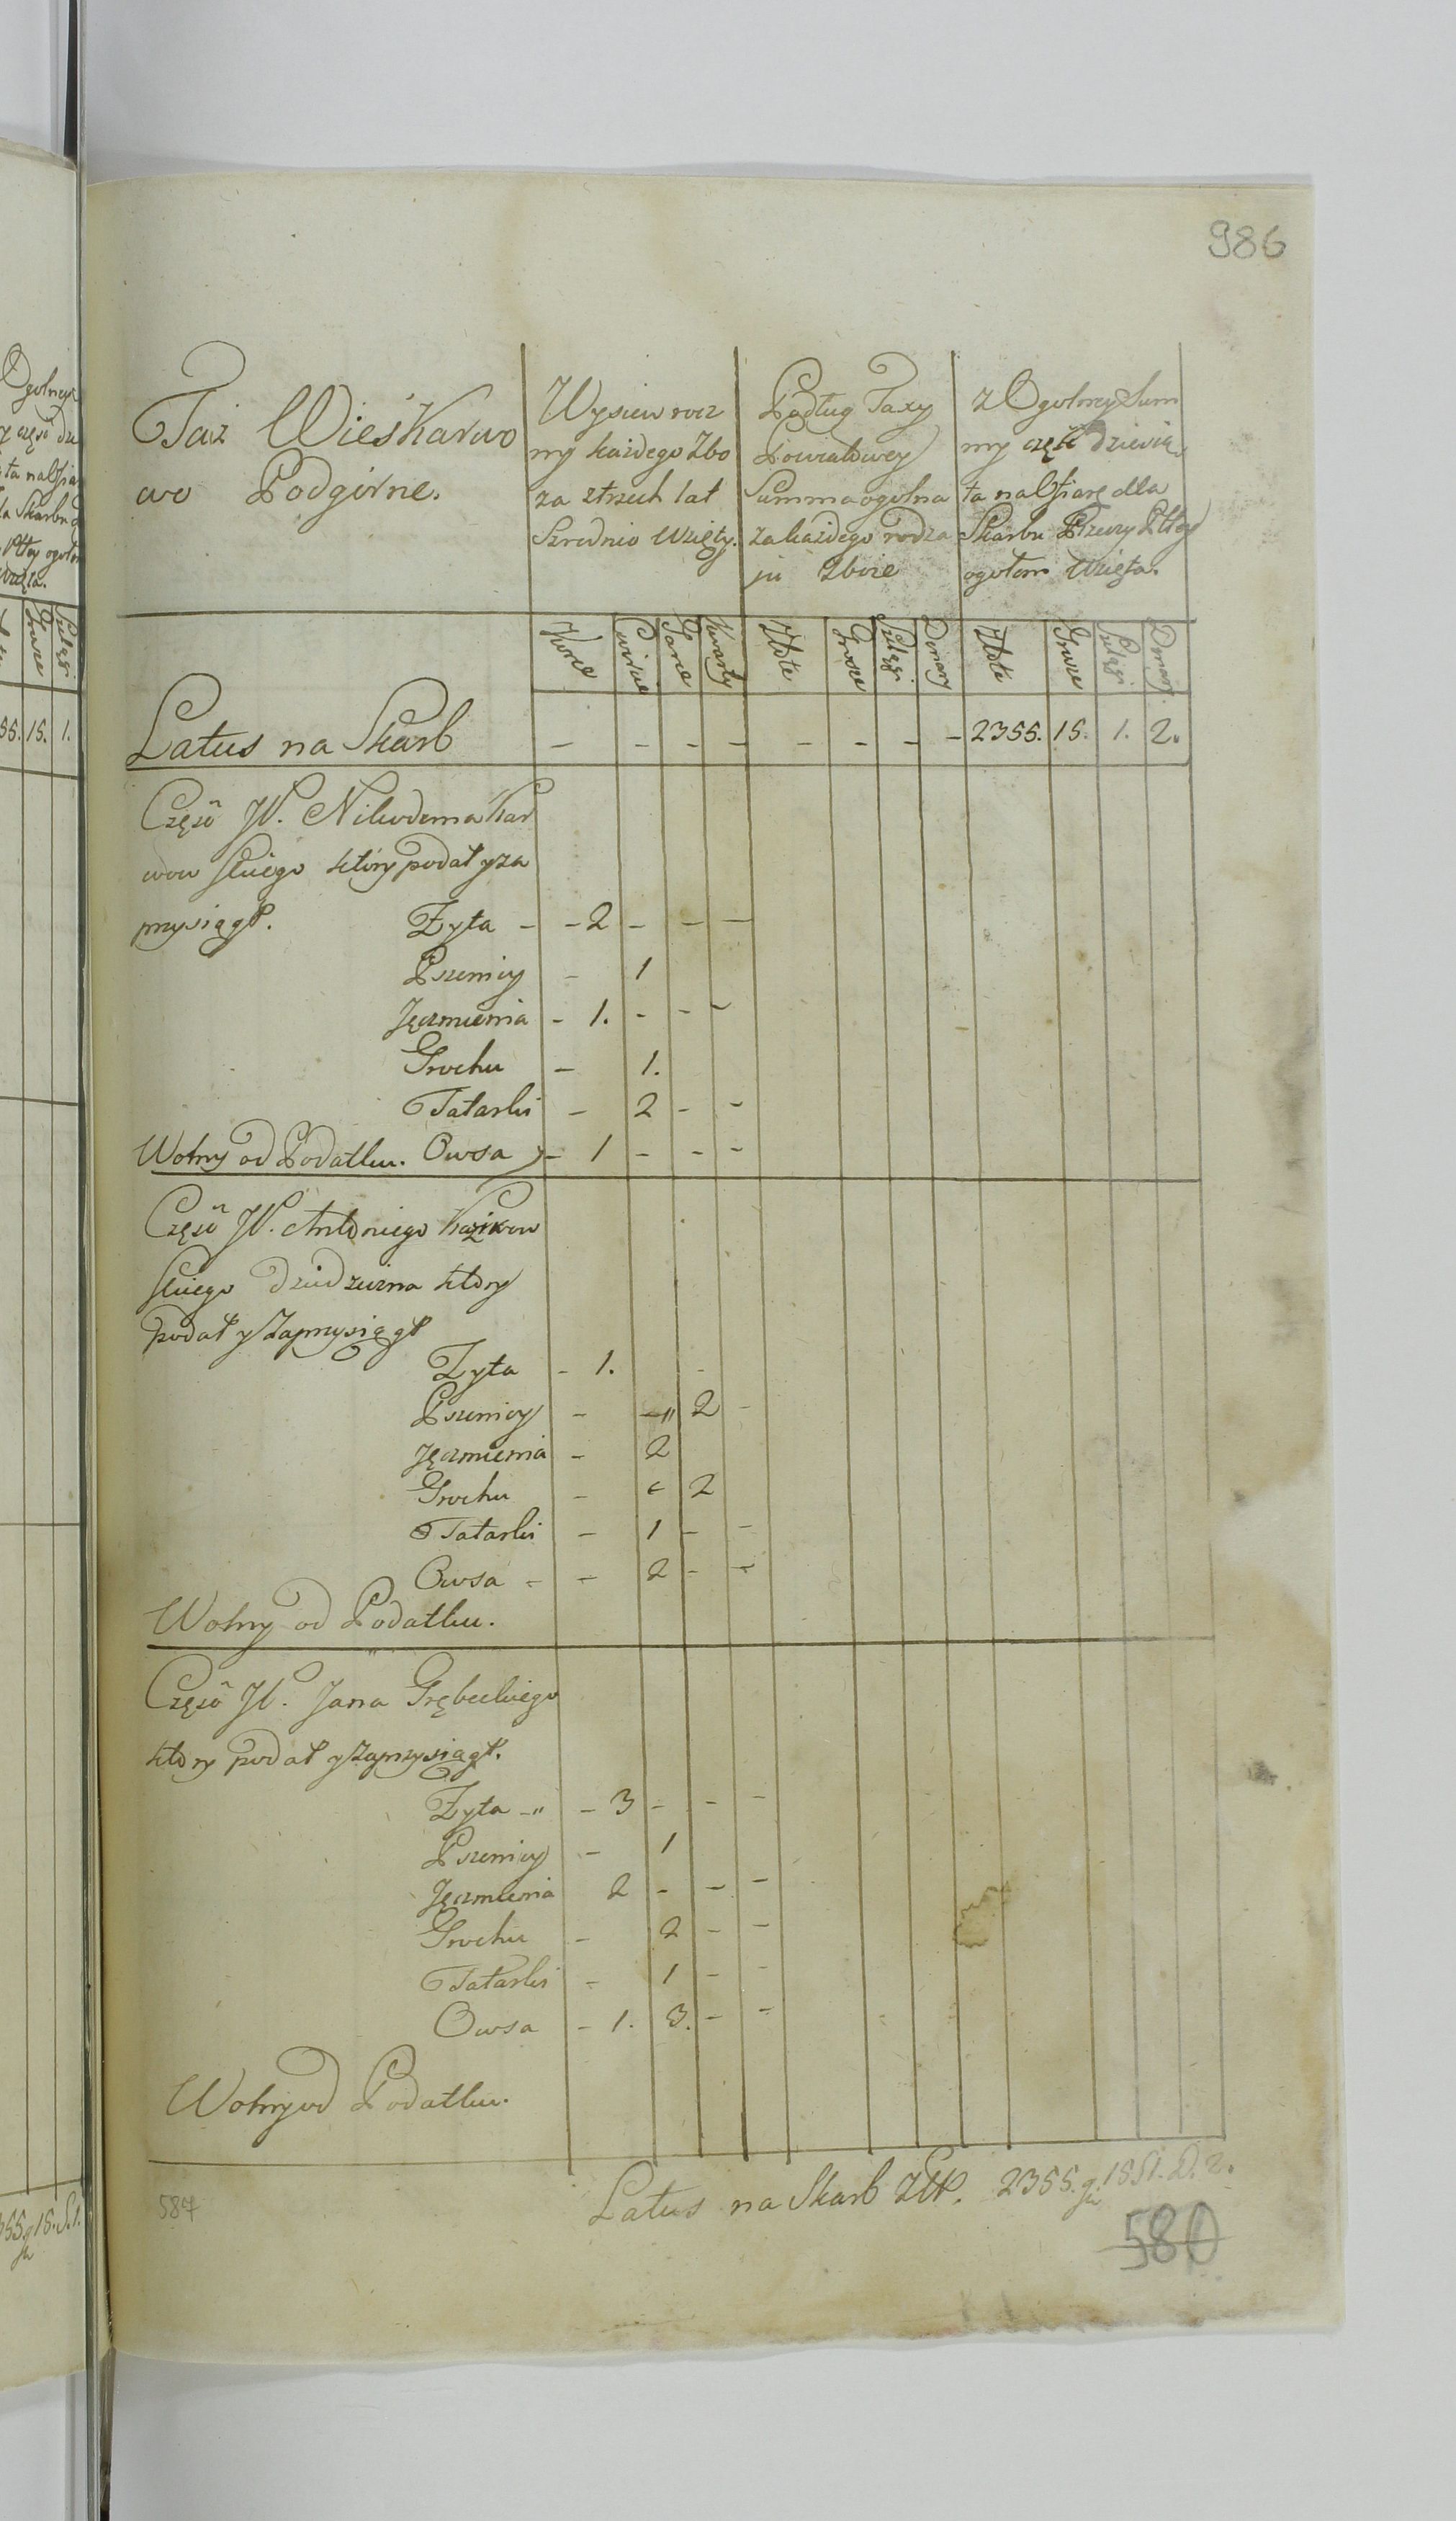 986
Taż Wieś Karwo
wo Podgórne.
Wysiew rocz
ny każdego Zbo
za ztrzech lat
Szrednio Wzięty.
Podług Taxy
Powiatowey
Summa ogolna
za każdego rodza
ju Zboże
z Ogolney Sum
my część dziewią
ta na Ofiarę dla
Skarbu Rzeczy Pltey
ogołom Wzięta.
Korce Cwierce Garce Kwarty Złote Grosze Szelągi Denary Złote Grosze Szelągi Denary
Latus na Skarb - - - - - - - - 2355. 15. 1. 2.
Częsć JP. Nikodema Kar
wow skiego który podał y za
przysiągł. Zyta - - 2 - - -
Pszenicy - 1
Jęczmienia - 1. - - -
Grochu - 1.
Tatarki - 2 - -
Wolny od Podatku. Owsa - 1 - - -
Częsć JP. Antoniego
skiego ktory
podał y Zaprzysiągł
Zyta - 1. -
Pszenicy - -" 2 -
Jęczmienia - 2
Grochu - 2
Tatarki - 1 - -
Owsa - - 2 - -
Wolny od Podatku.
Częsć JP. Jana Grębeckiego
ktory podał y Zaprzysiągł.
Zyta -" - 3 - - -
Pszenicy - 1
Jęczmienia 2 - - -
Grochu - 2 - -
Tatarki - 1 - -
Owsa - 1. 3. - -
Wolny od Podatku.
Latus na Skarb ZłłP. 2355. gr 15 S1. D. 2.
587
580